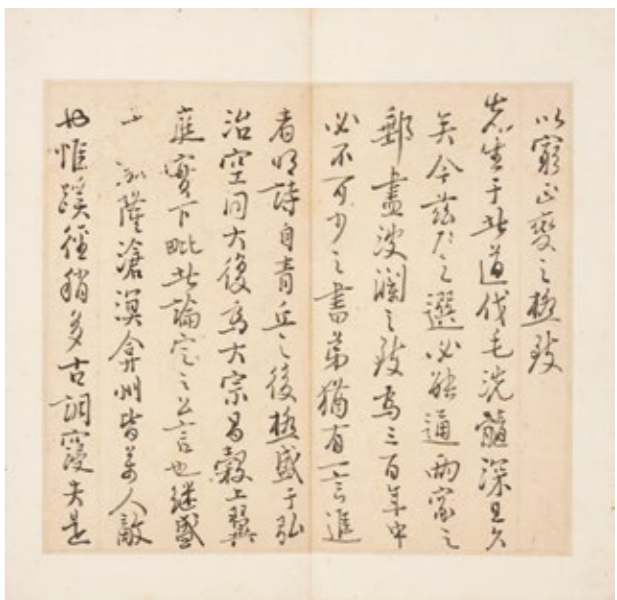 以窮正變之極致
先生于此道伐毛洗髓深且久
矣今茲之選必能通兩家之
郵盡波瀾之致為三百年中
必不可少之書第猶有一言進
者明詩自青丘之後極盛于弘
治空同大復為大宗昌穀上翼
庭實下毗此論定之公言也繼盛
于嘉隆滄溟弇州皆萬人敵
也惟蹊徑稍多古調寖失是